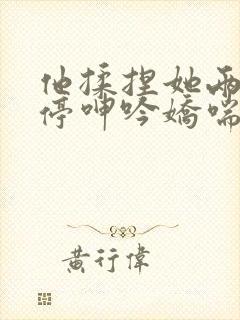 他揉捏她両
停呻吟嬌喘
黄行偉